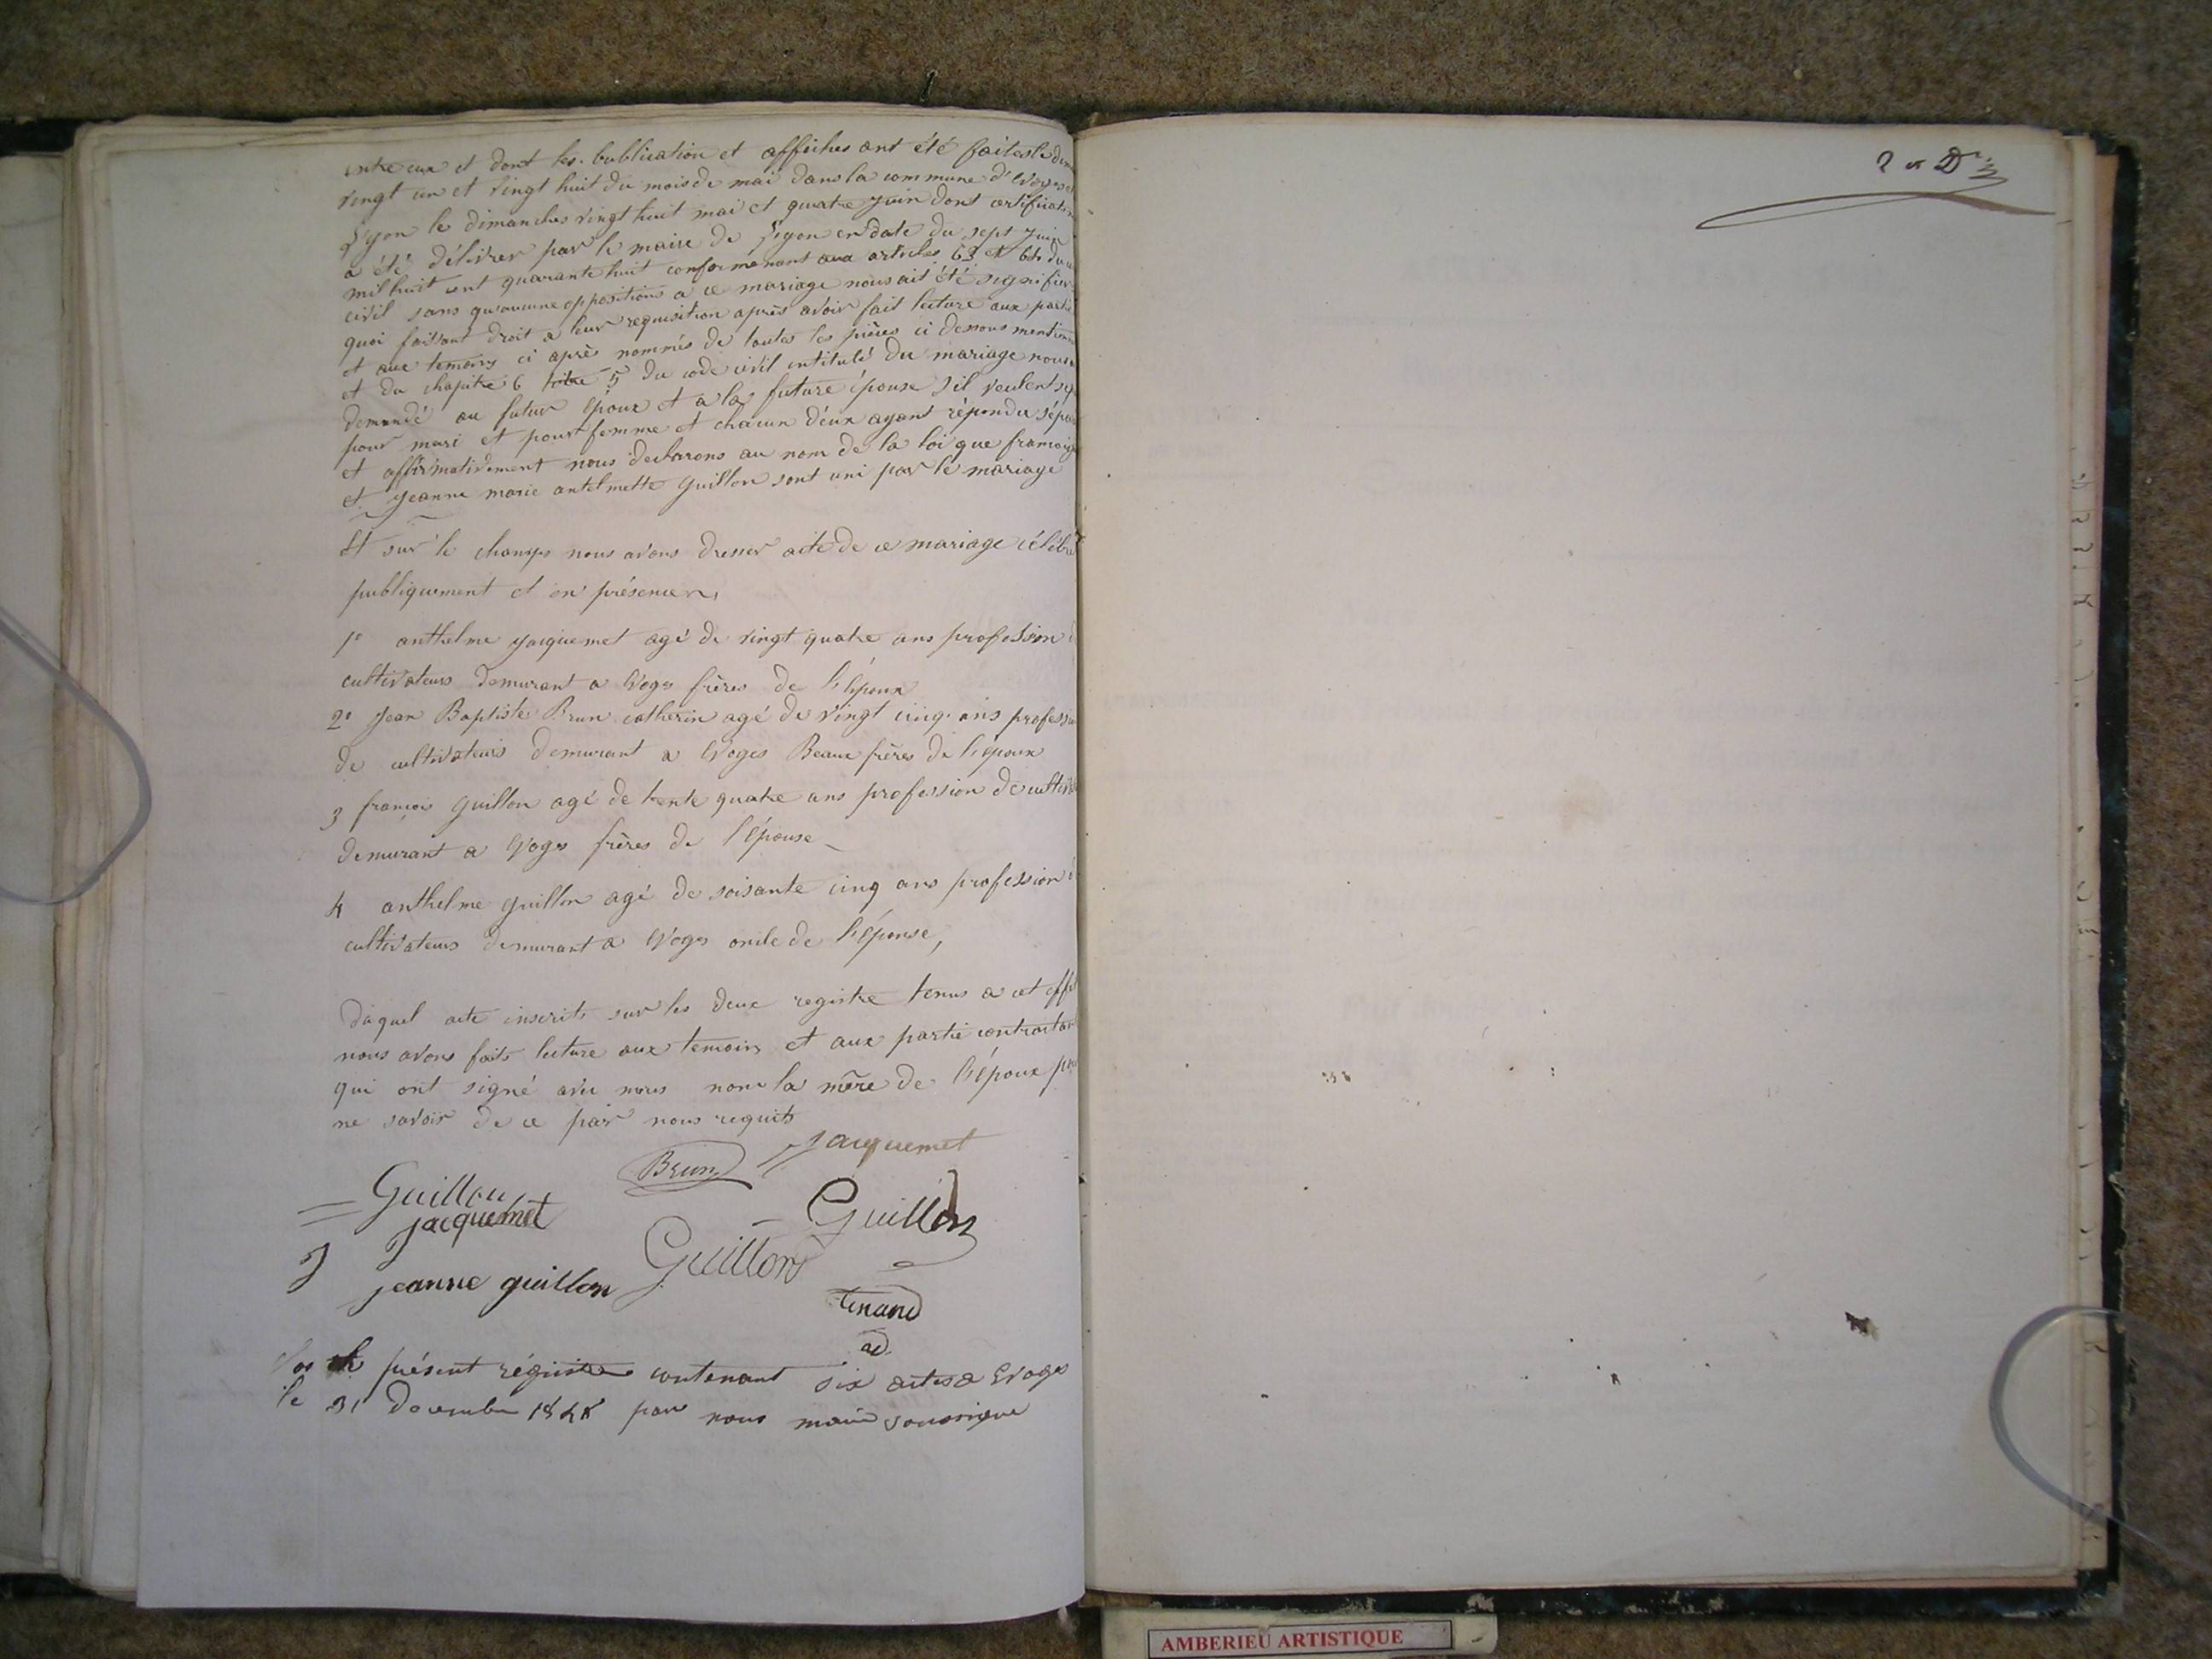 entre eux et dont les bublication et affiches ont été faites le dim
vingt un et vingt huit du mois de mai dans la commune d'Evoges
Lyon le dimanches vingt huit mai et quatre juin dont certificat
a été délivrer par le maire de Lyon en date du sept juin
mil huit cent quarante huit conformement aux articles 63 et 64 du
civil sans qu'aucune opposition a ce mariage nous ait été signifier
quoi faisant droit a leur requisition après avoir fait lecture aux parti
et aux temoins ci après nommés de toutes les pièces ci dessous mentionn
et du chapitre 6 titre 5 du code civil intitulé du mariage nous
demandé au futur époux et a la future épouse s'il veulent se p
pour mari et pour femme et chacun d'eux ayant répondu sépa
et affirmativement nous declarons au nom de la loi que francois
et jeanne marie antelmette Guillon sont uni par le mariage
Et sur le champs nous avons dresser acte de ce mariage célébré
publiquement et en présence
1° anthelme jacquemet agé de vingt quatre ans profession d
cultivateurs demurant a Evoges frères de l'époux
2° Jean Baptiste Brun catherin agé de vingt cinq ans profession
de cultivateurs demurant a Evoges Beaux frères de l'époux
3 françois Guillon agé de trente quatre ans profession de cultivat
demurant a Evoges frères de l'épouse
4 anthelme Guillon agé de soisante cinq ans profession d
cultivateurs demurant a Evoges oncle de l'épouse,
duquel acte inscrits sur les deux registre tenus a cet effet
nous avons faits lecture aux temoins et aux partie contractant
qui ont signé avec nous non la mère de l'époux pour
ne savoir de ce par nous requits
Brun jacquemet
Guillon
jacquemet
Guillon
Guillon
jeanne guillon
tenand
ad
clos le présent régistre contenant six actes a Evoges
le 31 Decembre 1848 par nous maire soussigne
2 et Der
AMBERIEU ARTISTIQUE